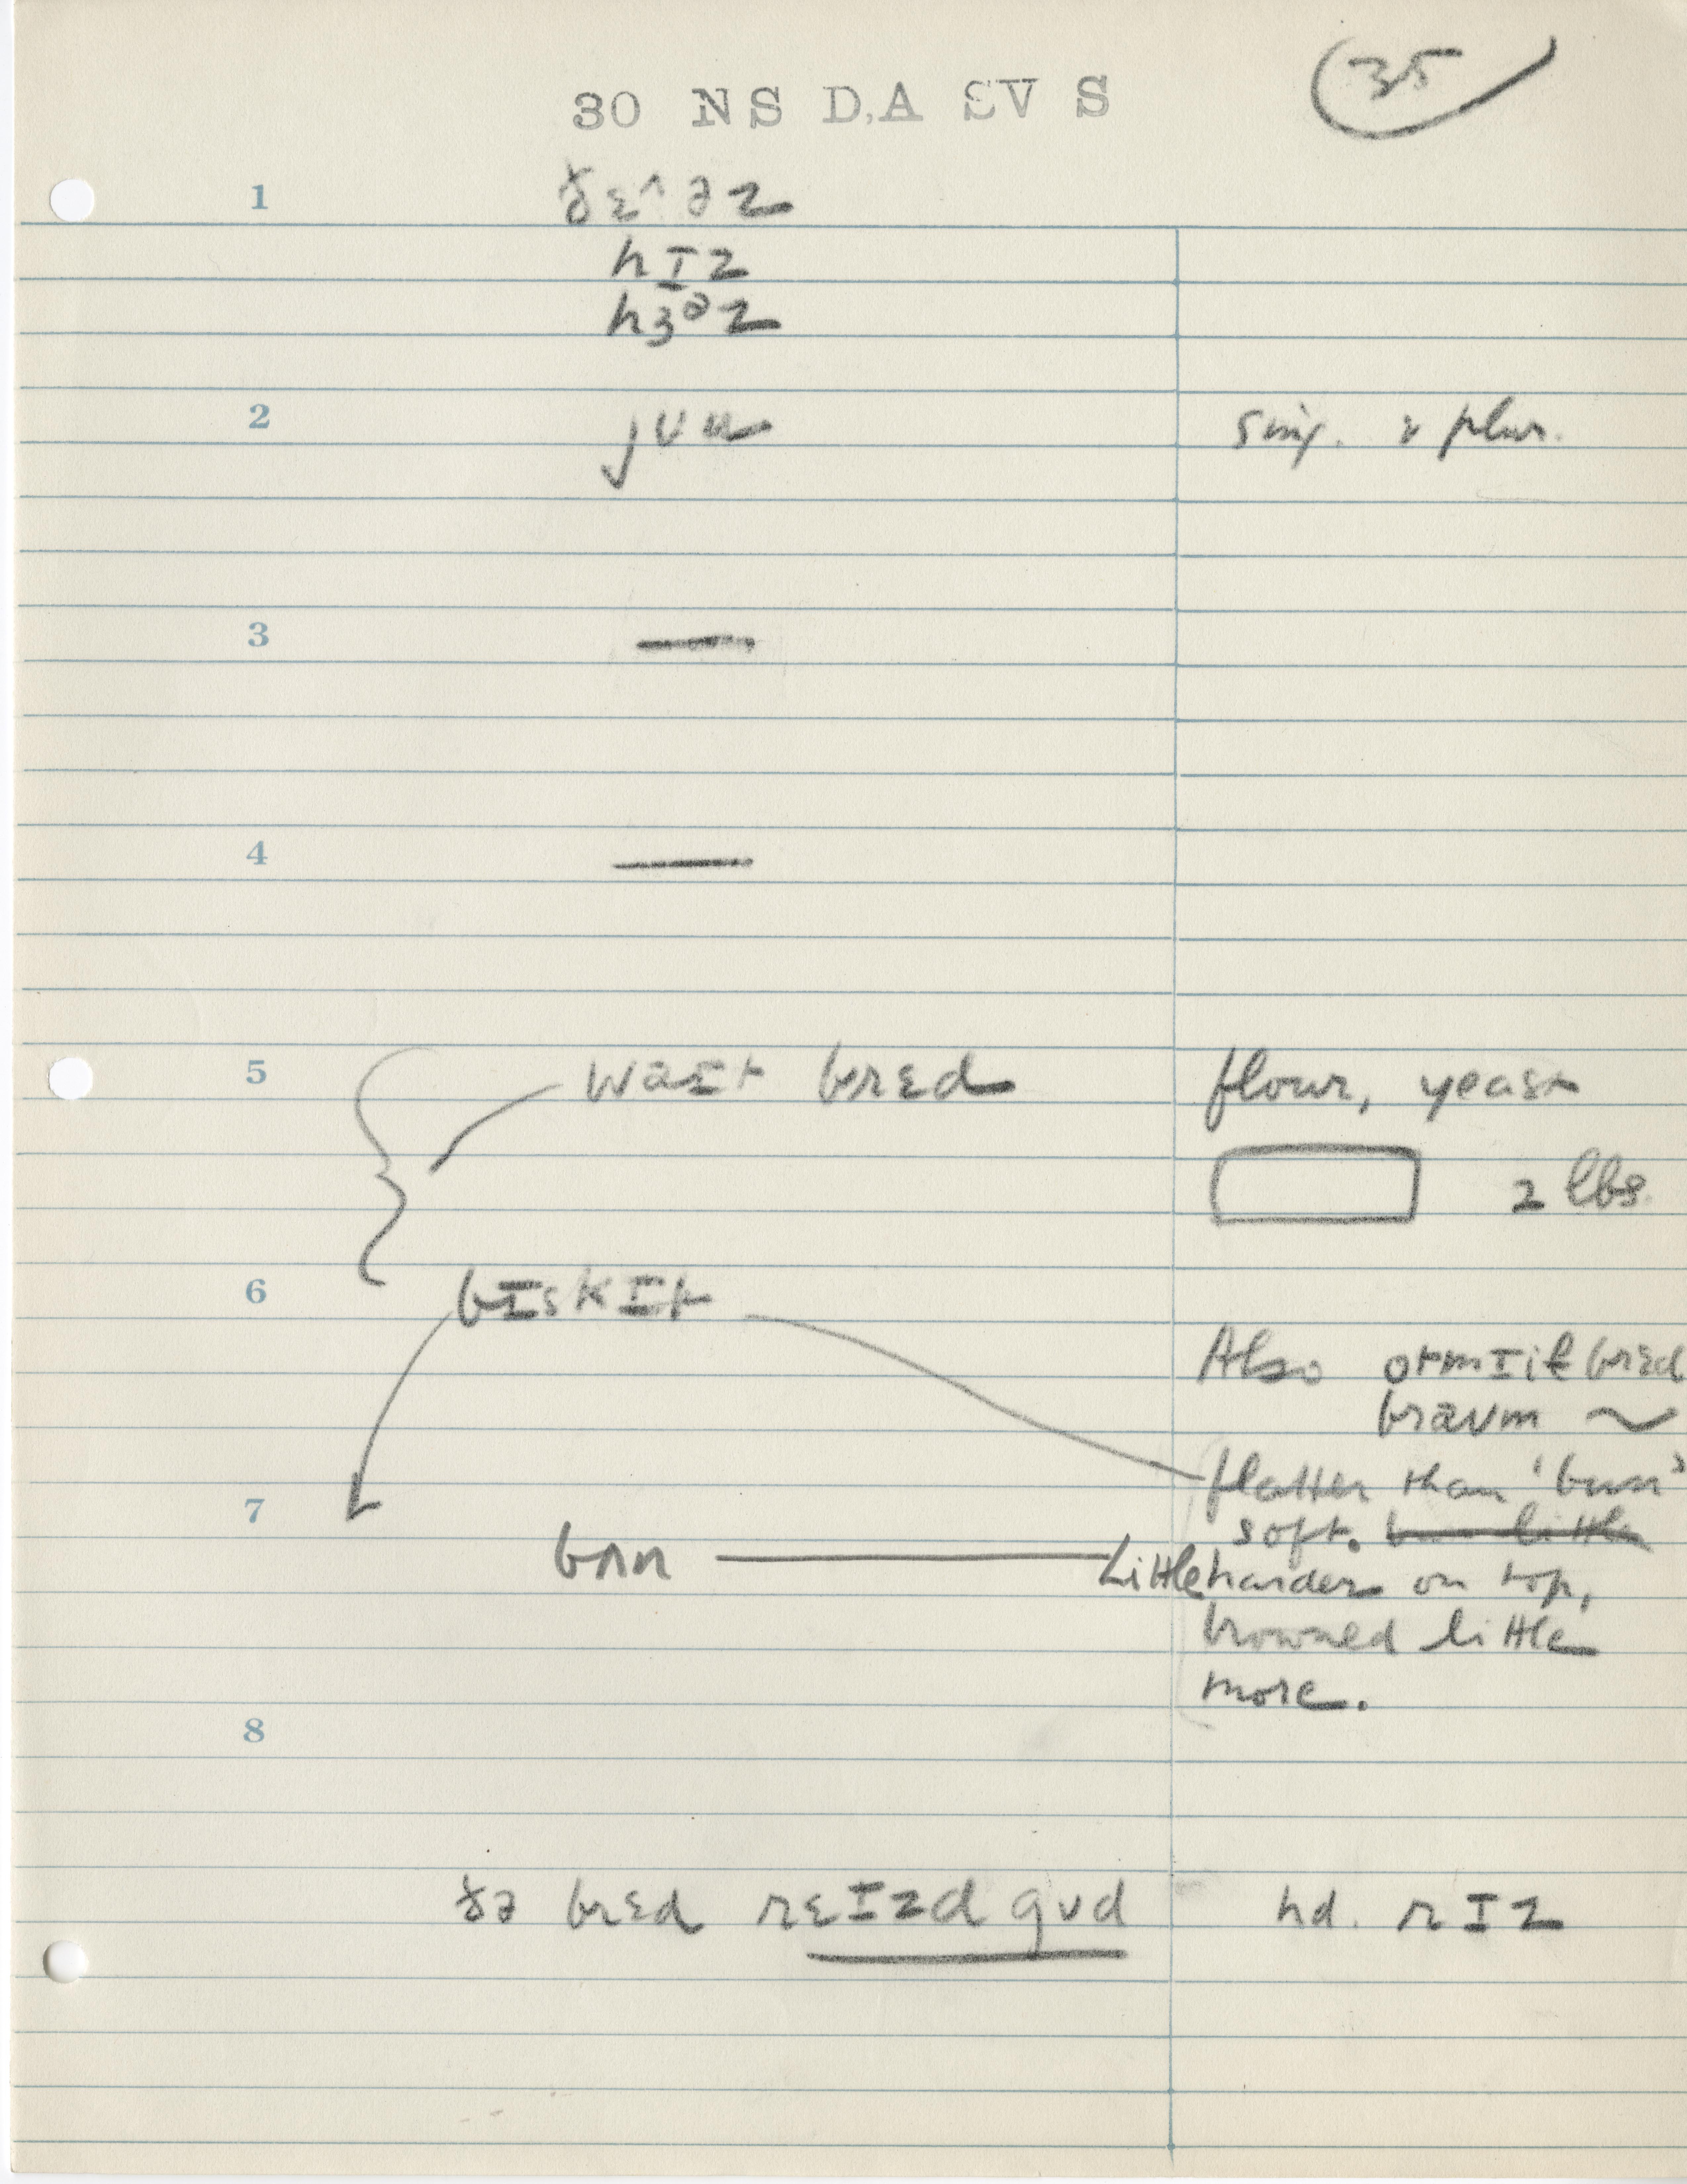 30 NS D,A SV S
35
1 ðɛ^əz
hɪz
hɜᵊz
2 jʊu sing. & plur.
3 —
4 —
5 waɪt brɛd flour, yeast
2 lbs.
6 bɪskɪt
Also otmɪil brɛd
braʊn ~
flatter than 'bun'
7 soft.
bʌn Little harder on top,
browned little
more.
8
ðə brɛd rɛɪzd gʊd hd. rɪz